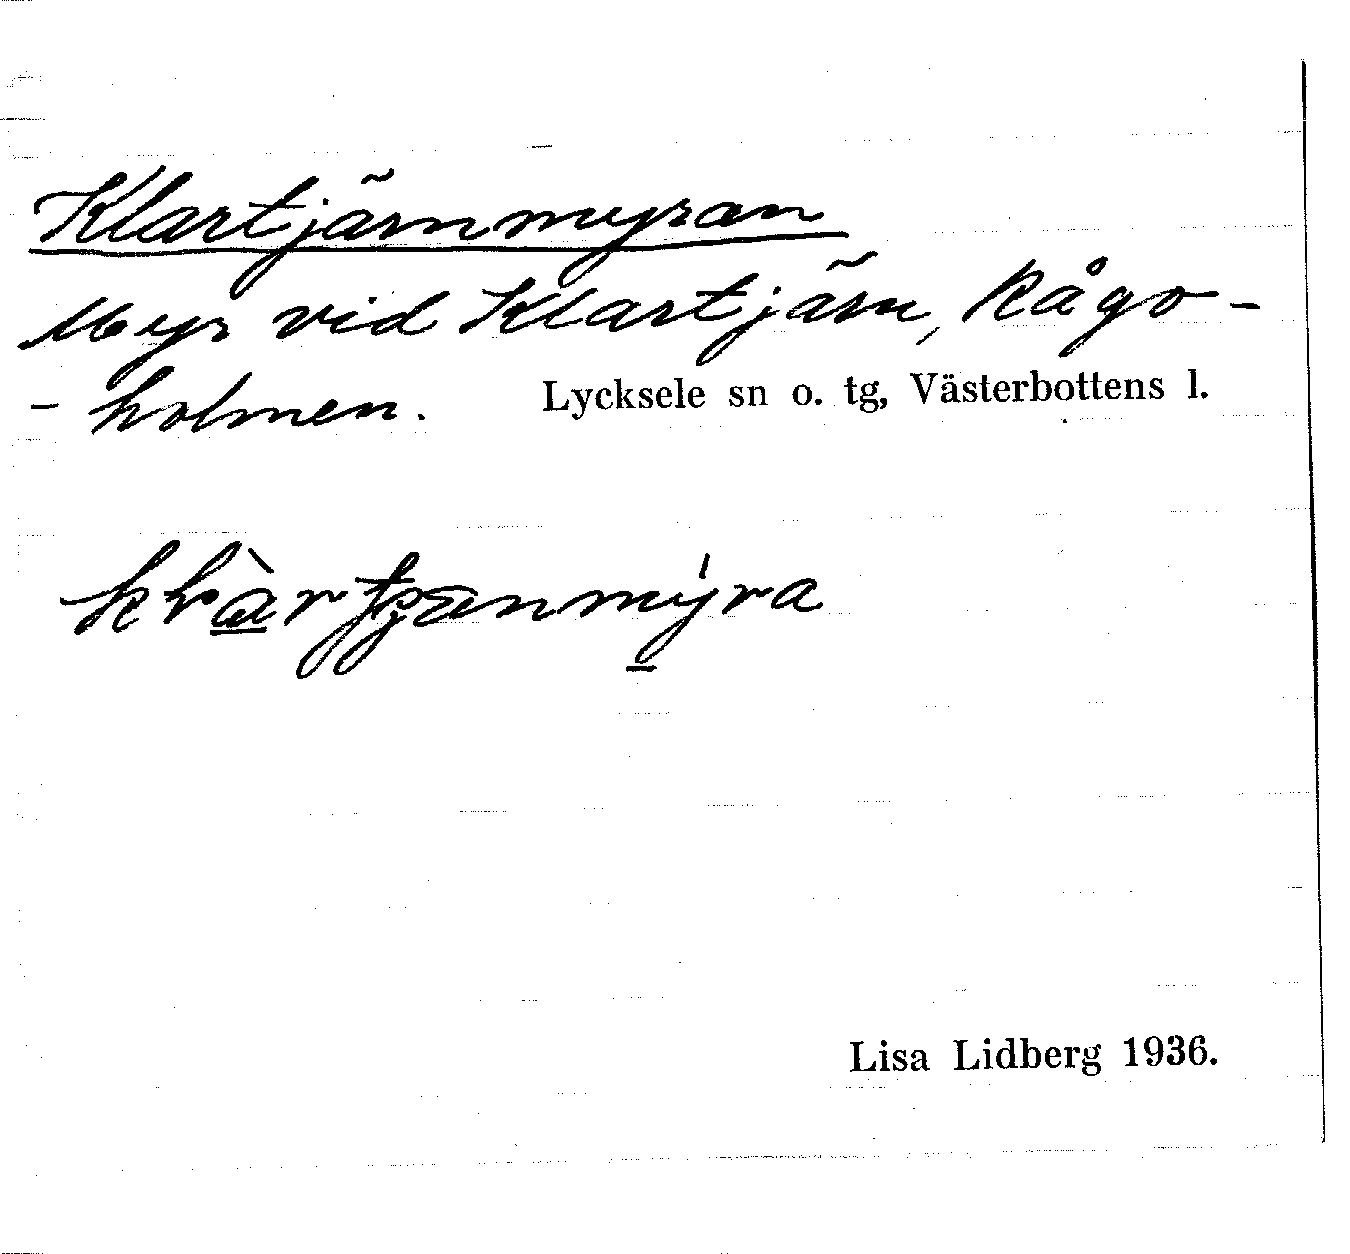 Klartjärnmyran
Myr vid Klartjärn, Rågo-
- holmen. Lycksele sn o. tg, Västerbottens l.
Lisa Lidberg 1936.